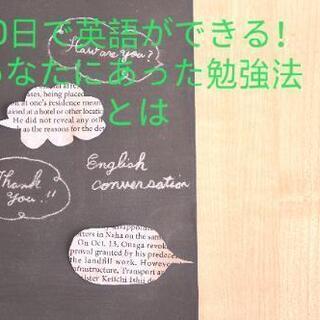 0日で英語ができる!
なたにあった勉強法
とは
How are you?
s, being placed
at one's residence mean
aised at a hotel or other locatio
He did not reveal any oth
as the reasons for the det
English
conversation
Thank
you!!
disappointm
tors in Naha on the sam
On Oct. 13, Onaga revok
proval granted by his predece
the landfill work. However
frastructure, Transport a
ister Keiichi Ishii d